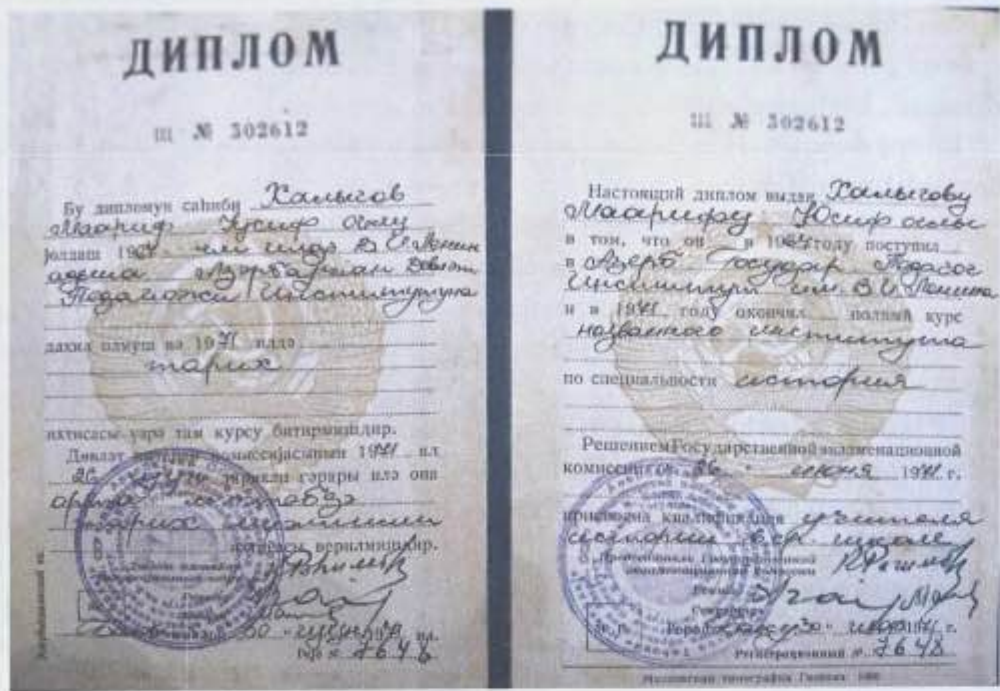 ДИПЛОМ
Ш № 302612
Бу дипломун саһиби Халыгов
Маариф Јусиф оғлу
јолдаш 19 чи илдә В.И.Ленин
адына Азәрбајҹан Дөвләт
Педагожи Институтуна
дахил олмуш вә 1971 илдә
тарих
ихтисасы үзрә там курсу битирмишдир.
Дөвләт комиссијасынын 1971 ил
26 тарихли гәрары илә она
орта мәктәбдә
тарих мүәллими
верилмишдир.
30
№ 7648
ДИПЛОМ
Ш № 302612
Настоящий диплом выдан Халыгову
Маарифу Юсиф оглы
в том, что он в 19 году поступил
в Азерб. Государ. Педагог
Институт им. В.И. Ленина
и в 1971 году окончил полный курс
названного института
по специальности история
Решением Государственной экзаменационной
комиссии от 26 июня 1971 г.
присвоена квалификация учителя
истории в ср. школе
Председатель Государственной
экзаменационной комиссии
Ректор
Секретарь
Город 30 г.
Регистрационный № 7648
Московская типография Гознака